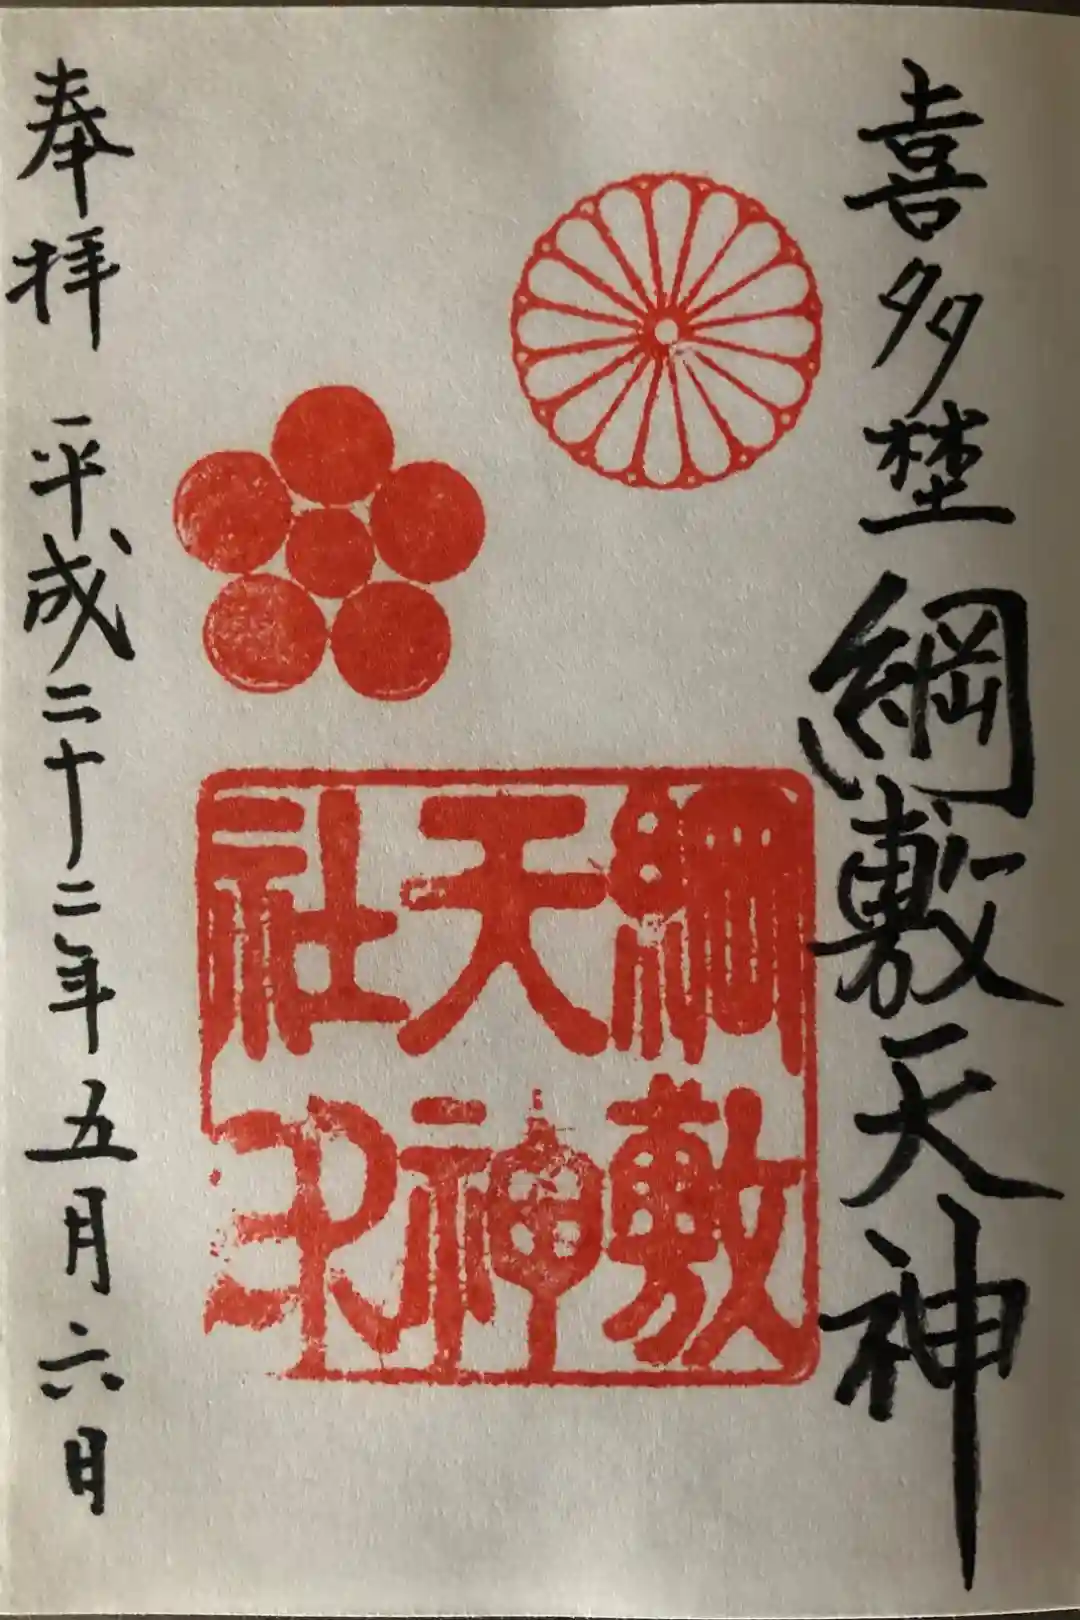 喜多埜 綱敷天神
綱敷
天神
社印
奉拝 平成二十二年五月六日